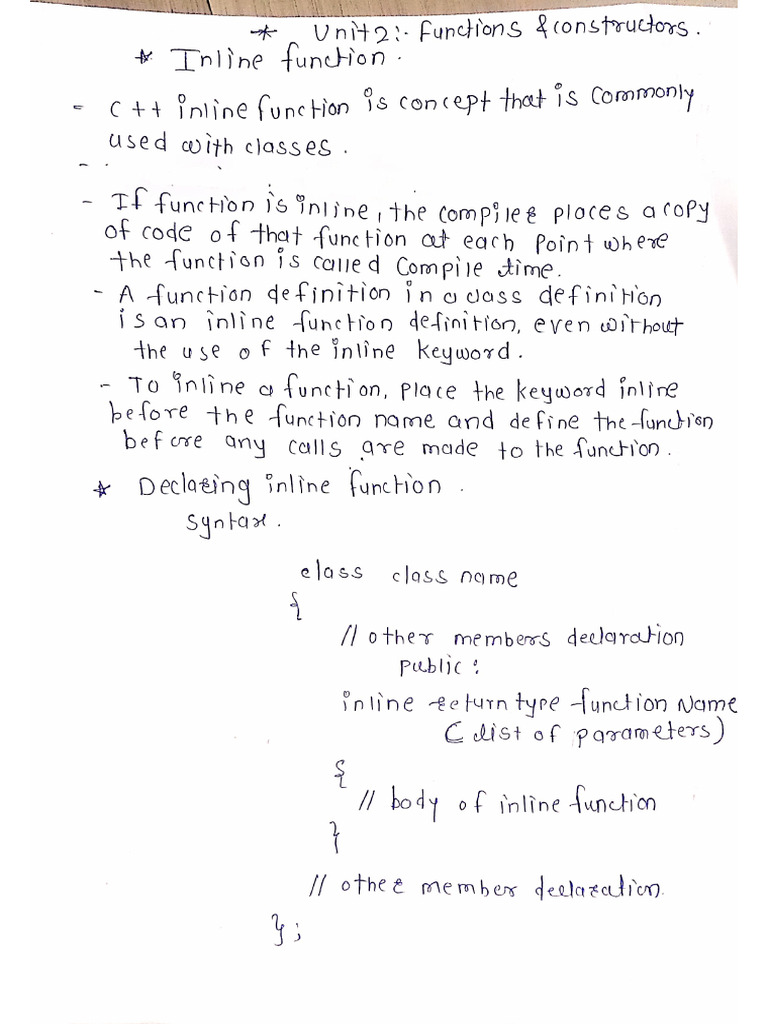 * Unit2:- Functions & constructors.
* Inline function.
- C++ inline function is concept that is commonly
used with classes.
- .
- If function is inline, the compiler places a copy
of code of that function at each point where
the function is called compile time.
- A function definition in a class definition
is an inline function definition, even without
the use of the inline keyword.
- To inline a function, place the keyword inline
before the function name and define the function
before any calls are made to the function.
* Declaring inline function.
Syntax.
class class name
{
// other members declaration
public:
inline return type function Name
( list of parameters)
{
// body of inline function
}
// other member declaration.
};